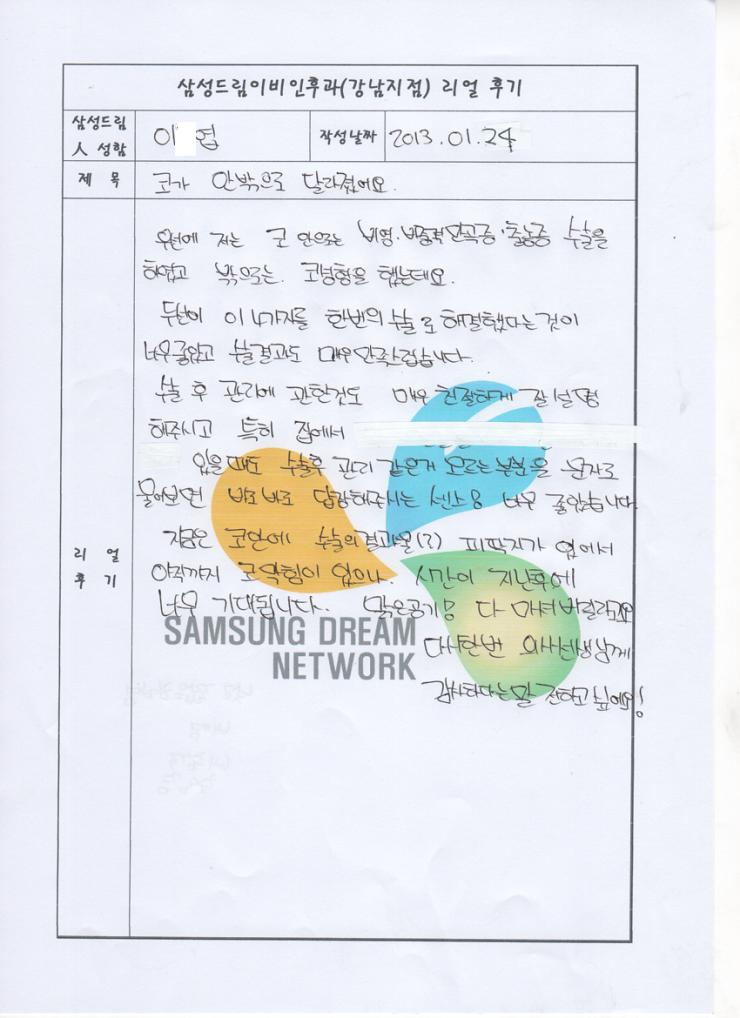 삼성드림이비인후과(강남지점) 리얼 후기
삼성드림
人 성함
이 엽
작성날짜
2013.01.24
제 목
코가 안밖으로 달라졌어요.
리 얼
후 기
우선에 저는 코 안으로는 비염·비중격만곡증·축농증 수술을
하였고 밖으로는 코성형을 했는데요.
이 4가지를 한번의 수술로 해결했다는 것이
너무 좋았고 수술결과도 매우 만족스럽습니다.
수술 후 관리에 관한것도 매우 친절하게 잘 설명
해주시고 특히 집에서
있을때도 수술후 관리 같은거 모르는 부분을 문자로
물어보면 바로바로 답장해주시는 센스 너무 좋았습니다
지금은 코안에 수술의 결과물(?) 피딱지가 있어서
아직까지 코막힘이 있으나 시간이 지난후에
너무 기대됩니다. 맑은공기 다 마셔버릴라고요
SAMSUNG DREAM
NETWORK
다시한번 의사선생님께
감사하다는말 전하고 싶어요!